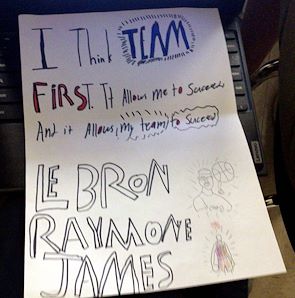 I Think TEAM
FIRST. It Allows me to Succeed,
And it Allows my team to Succeed
LE BRON
RAYMONE
JAMES